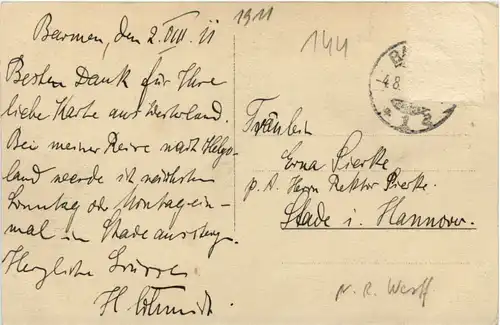 1911
144
Barmen, den 2. VIII. 11
Besten Dank für Ihre
liebe Karte aus Westerland.
Bei meiner Reise nach Helgo-
land werde ich nächsten
Sonntag oder Montag ein-
mal in Stade aussteigen.
Herzliche Grüsse
H. Schmidt.
BA
4.8.
Fräulein
Erna Sierke
p. A. Herrn Rektor Sierke.
Stade i. Hannover.